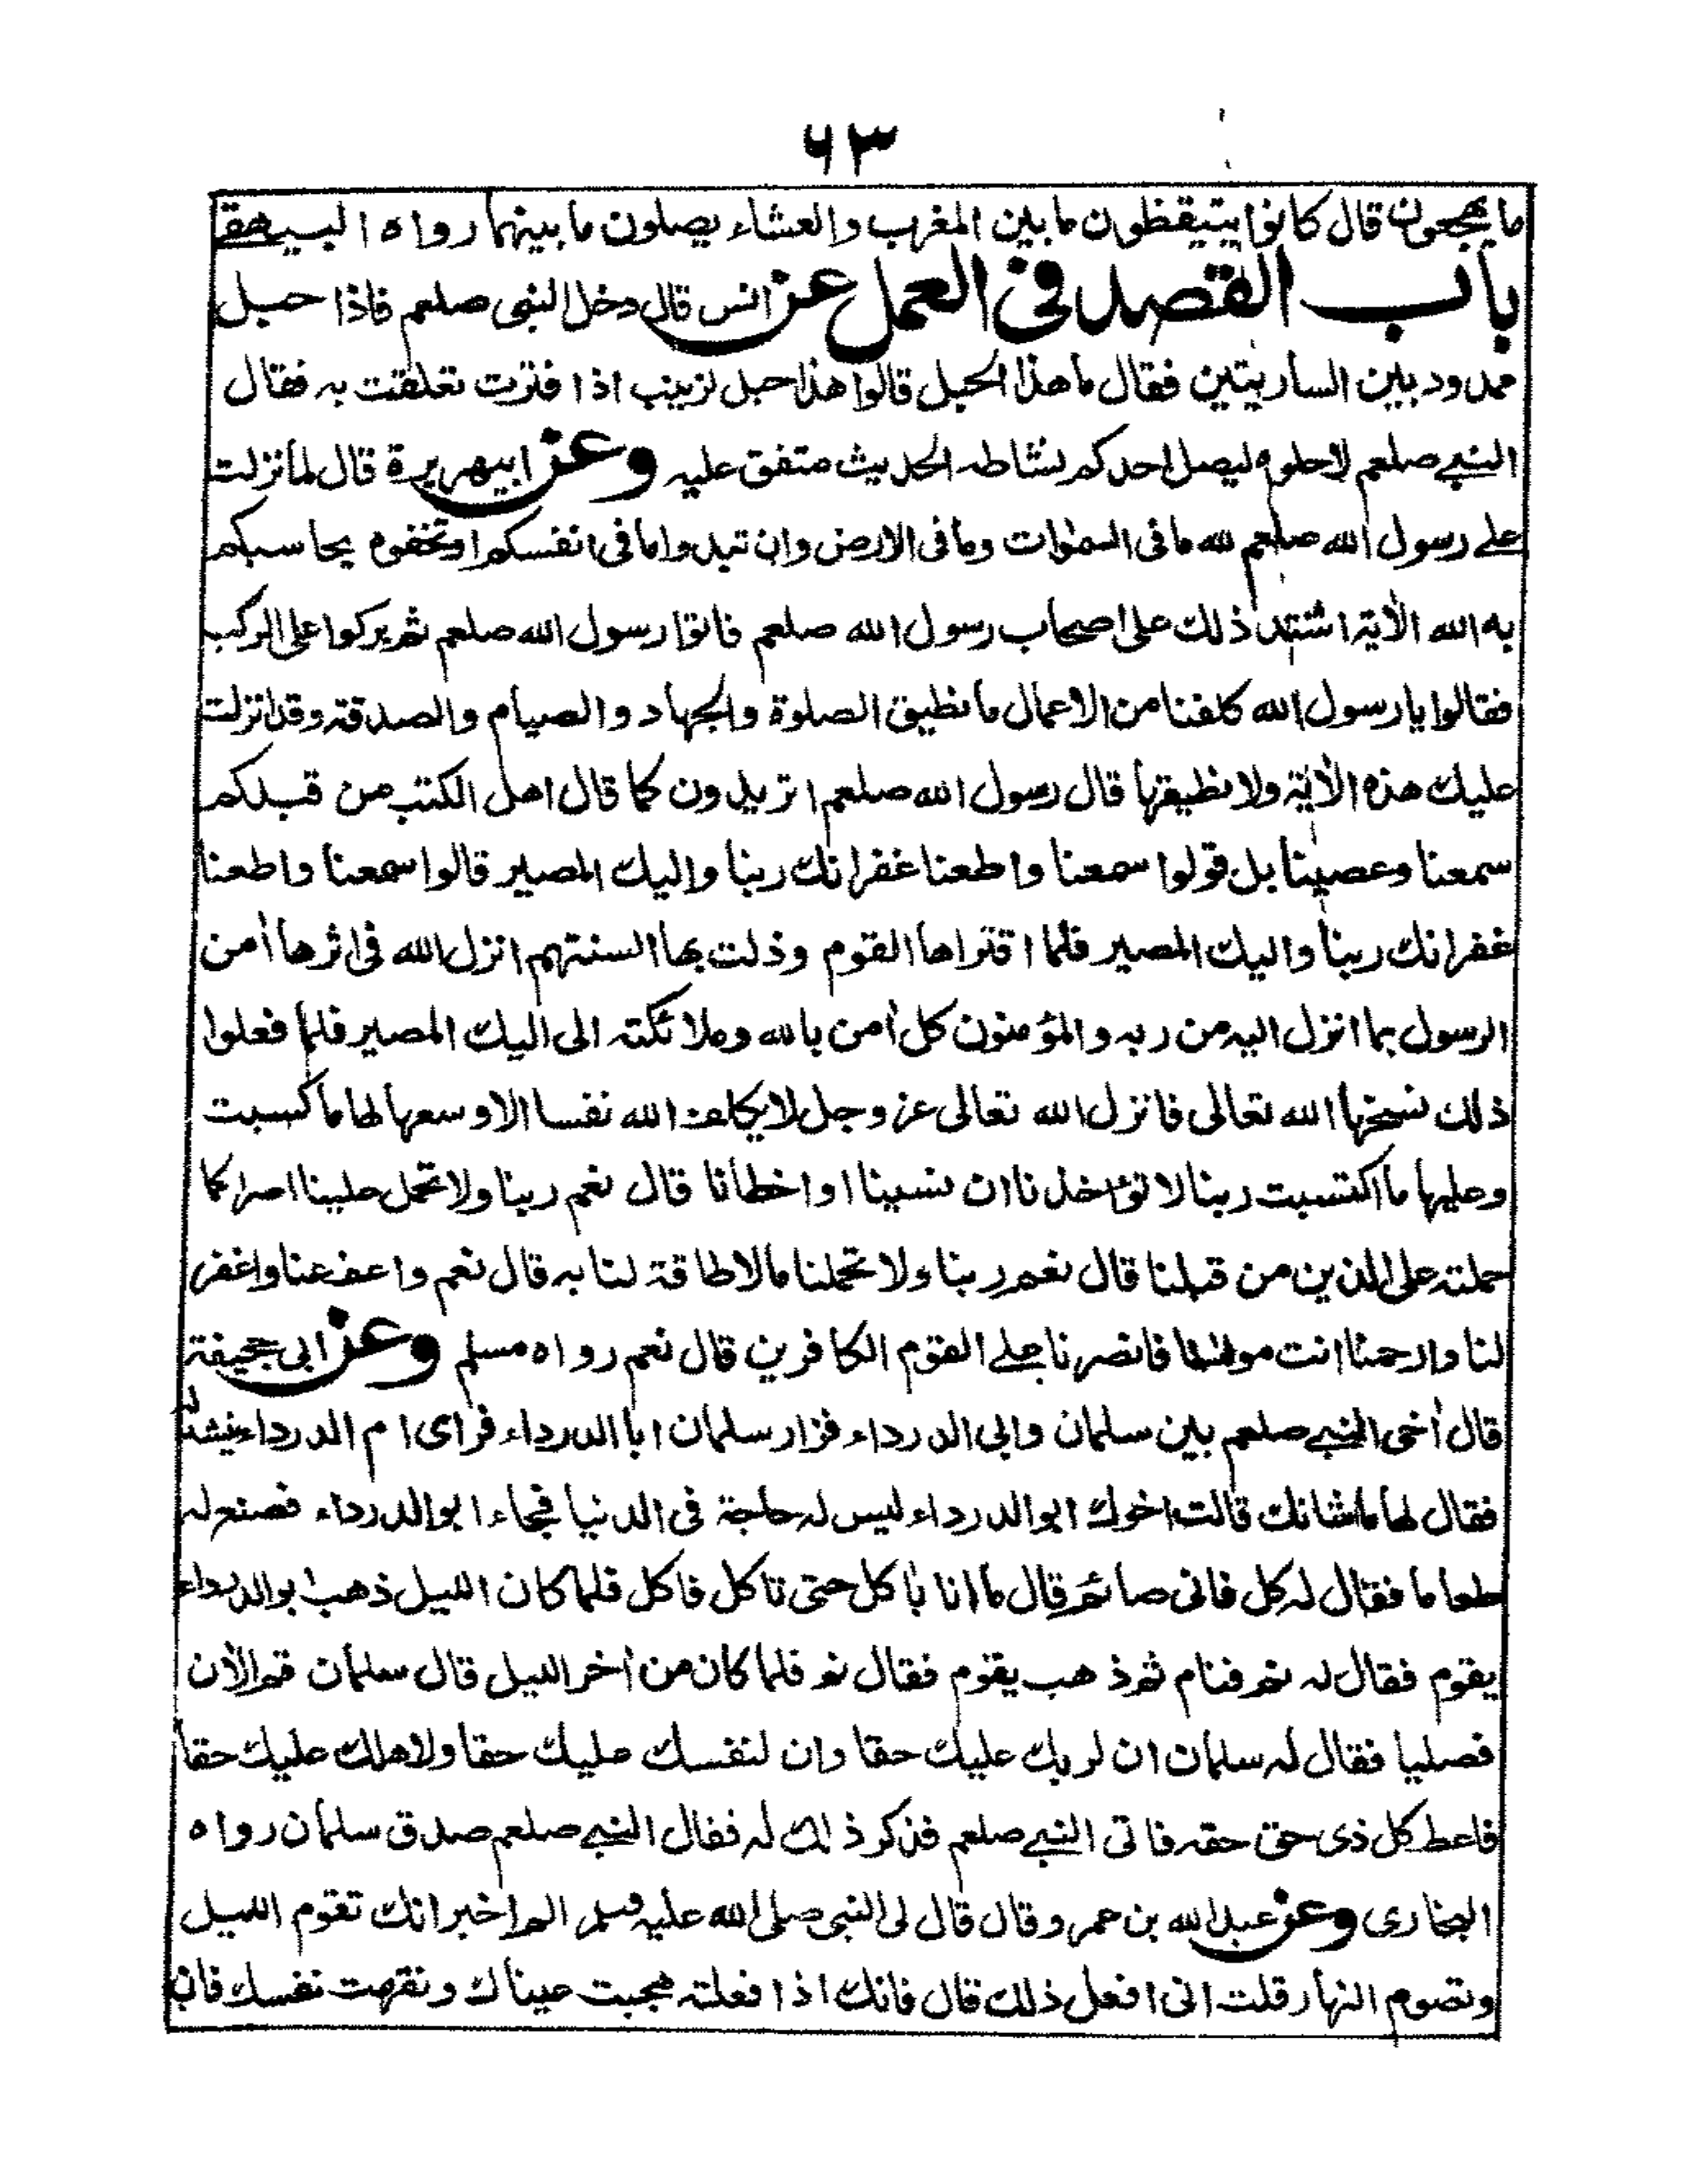 ٦٣
ما يهجعون قال كانوا يتيقظون ما بين المغرب والعشاء يصلون ما بينهما رواه البيهقے
باب القصد فى العمل عن انس قال دخل النبى صلعم فاذا حبل
ممدود بين الساريتين فقال ما هذا الحبل قالوا هذا حبل لزينب اذا فترت تعلقت به فقال
النبے صلعم لا حلوه ليصل احدكم نشاطه الحديث متفق عليه وعن ابيهريرة قال لما نزلت
علے رسول الله صلعم لله ما فى السمٰوات وما فى الارض وان تبدوا ما فى انفسكم او تخفوه يحاسبكم
به الله الاٰية اشتد ذلك على اصحاب رسول الله صلعم فاتوا رسول الله صلعم ثم بركوا على الركب
فقالوا يا رسول الله كلفنا من الاعمال ما نطيق الصلوة والجهاد والصيام والصدقة وقد انزلت
عليك هذه الاٰية ولا نطيقها قال رسول الله صلعم اتريدون كما قال اهل الكتٰب من قبلكم
سمعنا وعصينا بل قولوا سمعنا واطعنا غفرانك ربنا واليك المصير قالوا سمعنا واطعنا
غفرانك ربنا واليك المصير فلما اقتراها القوم وذلت بها السنتهم انزل الله فى اثرها اٰمن
الرسول بما انزل اليه من ربه والمؤمنون كل اٰمن بالله وملائكته الى اليك المصير فلما فعلوا
ذلك نسخها الله تعالى فانزل الله تعالى عز وجل لا يكلف الله نفسا الا وسعها لها ما كسبت
وعليها ما اكتسبت ربنا لا تؤاخذنا ان نسينا او اخطانا قال نعم ربنا ولا تحمل علينا اصرا كما
حملته على الذين من قبلنا قال نعم ربنا ولا تحملنا ما لا طاقة لنا به قال نعم واعف عنا واغفر
لنا وارحمنا انت مولٰىنا فانصرنا علے القوم الكافرين قال نعم رواه مسلم وعن ابى جحيفة
قال اٰخى النبے صلعم بين سلمان وابى الدرداء فزار سلمان ابا الدرداء فراى ام الدرداء
فقال لها ما شانك قالت اخوك ابو الدرداء ليس له حاجة فى الدنيا فجاء ابو الدرداء فصنع له
طعاما فقال له كل فانى صائم قال ما انا باٰكل حتى تاكل فاكل فلما كان الليل ذهب ابو الدرداء
يقوم فقال له نم فنام ثم ذهب يقوم فقال نم فلما كان من اٰخر الليل قال سلمان قم الاٰن
فصليا فقال له سلمان ان لربك عليك حقا وان لنفسك عليك حقا ولاهلك عليك حقا
فاعط كل ذى حق حقه فاتى النبے صلعم فذكر ذلك له فقال النبے صلعم صدق سلمان رواه
البخارى وعن عبد الله بن عمرو قال قال لى النبى صلى الله عليه وسلم الم اخبر انك تقوم الليل
وتصوم النهار قلت انى افعل ذلك قال فانك اذا فعلته هجبت عيناك ونقهت نفسك فان